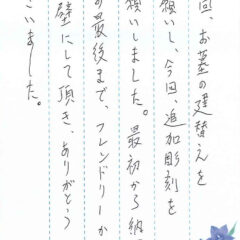 回、お墓の建替えを
願いし、今回、追加彫刻を
願いしました。最初から納
の最後まで、フレンドリーか
壁にして頂き、ありがとう
ざいました。